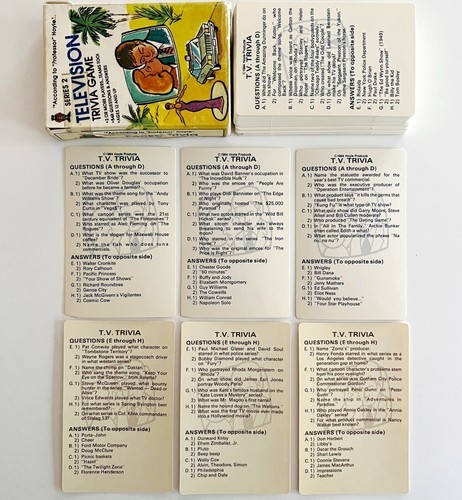 "According to "Professor" Hoyle".
SERIES 2
TELEVISION
TRIVIA GAME
T.V. TRIVIA
QUESTIONS (A through D)
A.1) What TV show was the successor to
"December Bride"?
2) What was Oliver Douglas' occupation
before he became a farmer?
B.1) What was the theme song for the "Andy
Williams Show"?
2) What character was played by Tony
Curtis in "Vegas"?
C.1) What cartoon series was the 21st
century equivalent of "The Flintstones"?
2) Who starred as Alec Fleming in "The
Rogues"?
D.1) What is the slogan for Maxwell House
coffee?
2) Name the fish who does tuna
commercials.
ANSWERS (To opposite side)
E.1) Walter Cronkite
2) Rory Calhoun
F.1) Pacific Princess
2) "Your Show of Shows"
G.1) Richard Roundtree
2) Genoa City
H.1) Jack McGivern's Vigilantes
2) Cosmic Cow
T.V. TRIVIA
QUESTIONS (A through D)
A.1) What was David Banner's occupation in
"The Incredible Hulk"?
2) Who was the emcee on "People Are
Funny"?
B.1) Who plays Didi Bannister on "The Edge
of Night"?
2) Who originally hosted "The $25,000
Pyramid"?
C.1) What two actors starred in the "Wild Bill
Hickok" series?
2) What character was always
threatening to send Alice to the
moon?
D.1) Who starred in the series "The Iron
Horse"?
2) Who was the original emcee for "The
Price Is Right"?
ANSWERS (To opposite side)
E.1) Chester Goode
2) "60 minutes"
F.1) Buffy and Jody
2) Elizabeth Montgomery
G.1) Guy Williams
2) The Cowsills
H.1) William Conrad
2) Napoleon Solo
T.V. TRIVIA
QUESTIONS (A through D)
A.1) Name the statuette awarded for the
year's best TV commercial.
2) Who was the executive producer of
"Operation Entertainment"?
B.1) What product says "it kills the germs that
cause bad breath"?
2) "Kung Fu" is what type of TV show?
C.1) What quiz show did Garry Moore, Steve
Allen and Bill Cullen moderate?
2) Who produced "The Dating Game"?
D.1) In "All in The Family," Archie Bunker
often called Edith a what?
2) What actor popularized the phrase "Na
no, na nu"?
ANSWERS (To opposite side)
E.1) Wrigley
2) Bill Dana
F.1) "Gunsmoke"
2) Jerry Mathers
G.1) Ed Sullivan
2) Eliot Ness
H.1) "Would you believe..."
2) "Four Star Playhouse"
T.V. TRIVIA
QUESTIONS (E through H)
E.1) Pat Conway played what character on
"Tombstone Territory"?
2) Wayne Rogers was a stagecoach driver
in what western series?
F.1) Name the chimp on "Daktari."
2) Who sang the theme song, "Keep Your
Eye on the Sparrow," from Baretta?
G.1) Steve McQueen played what bounty
hunter in the series "Wanted — Dead or
Alive"?
2) Vince Edwards played what TV doctor?
H.1) For what series is Spring Byington best
remembered?
2) On what series is Col. Klink commandant
of Stalag 13?
ANSWERS (To opposite side)
A.1) Porta-John
2) Cheer
B.1) Ford Motor Company
2) Doug McClure
C.1) Picnic baskets
2) "Hazel"
D.1) "The Twilight Zone"
2) Florence Henderson
T.V. TRIVIA
QUESTIONS (E through H)
E.1) Paul Michael Glaser and David Soul
starred in what police series?
2) Bobby Diamond played what character
on "Fury"?
F.1) Who portrayed Rhoda Morgenstern on
"Rhoda"?
2) On what show did James Earl Jones
portray Woody Paris?
G.1) Who was Kate's famous husband in the
"Kate Loves a Mystery" series?
2) What was Mr. Magoo's first name?
H.1) Name the hound dog on "The Waltons"
2) What was the first TV movie ever made
into a Hollywood movie?
ANSWERS (To opposite side)
A.1) Durward Kirby
2) Efrem Zimbalist, Jr.
B.1) Pluto
2) Beep beep
C.1) Wally Cox
2) Alvin, Theodore, Simon
D.1) Philadelphia
2) Chip and Dale
T.V. TRIVIA
QUESTIONS (E through H)
E.1) Name "Zorro's" producer.
2) Henry Fonda starred in what series as a
Los Angeles detective caught in the
generation gap at home?
F.1) What cartoon character's problems stem
from his poor eyesight?
2) On what series was Gotham City Police
Commissioner Gordon?
G.1) Who portrayed Peter Gunn on "Peter
Gunn"?
2) Name the star of "Adventures in
Paradise."
H.1) Who played Annie Oakley in the "Annie
Oakley" series?
2) For what product commercial is Nancy
Walker best known?
ANSWERS (To opposite side)
A.1) Don Herbert
2) Libby's
B.1) Oscar the Grouch
2) Short Lears
C.1) Connie Stevens
2) James MacArthur
D.1) Impressions
2) Teacher